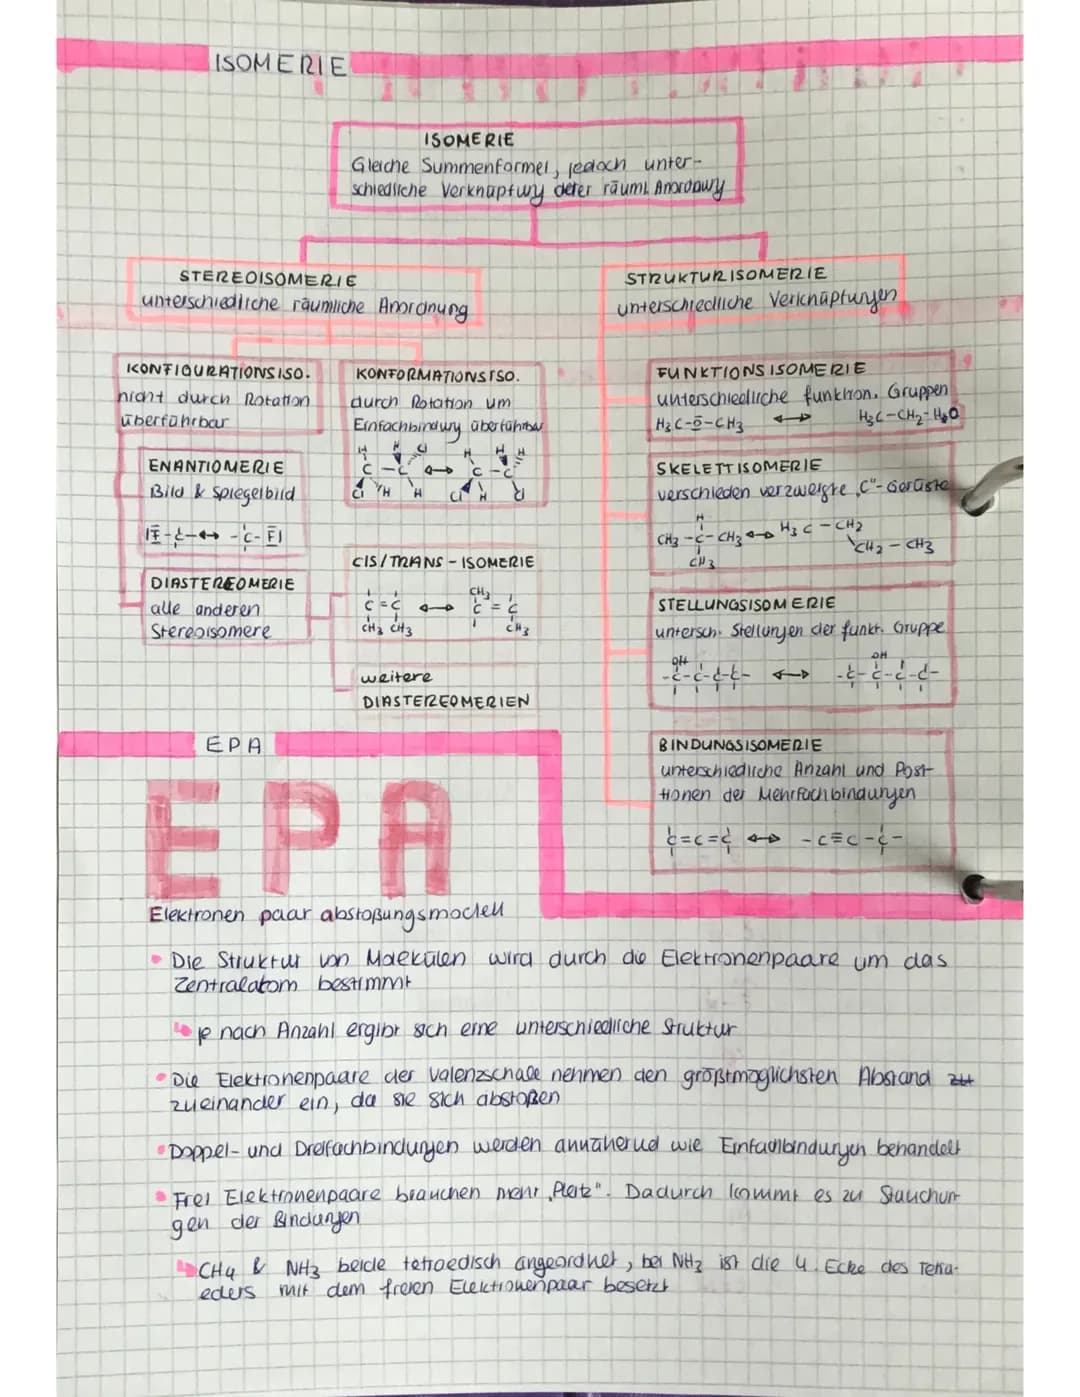 ISOMERIE
ISOMERIE
Gleiche Summenformel, jedoch unter-
schiedliche Verknüpfung derer räuml. Anordnung
STEREOISOMERIE
unterschiedliche räumliche Anordnung
STRUKTURISOMERIE
unterschiedliche Verknüpfungen
KONFIGURATIONSISO.
nicht durch Rotation
überführbar
KONFORMATIONSISO.
durch Rotation um
Einfachbindung überführbar
H H Cl H H H
C - C ↔ C - C
Cl H H Cl H Cl
ENANTIOMERIE
Bild & Spiegelbild
|F̄-C- ↔ -C-F̄|
DIASTEREOMERIE
alle anderen
Stereoisomere
CIS/TRANS-ISOMERIE
CH₃
C=C ↔ C=C
CH₃ CH₃ CH₃
weitere
DIASTEREOMERIEN
FUNKTIONSISOMERIE
unterschiedliche funktion. Gruppen
H₃C-Ō-CH₃ ↔ H₃C-CH₂-H₂O
SKELETTISOMERIE
verschieden verzweigte „C"-Gerüste
H
CH₃-C-CH₃ ↔ H₃C-CH₂
CH₃ CH₂-CH₃
STELLUNGSISOMERIE
untersch. Stellungen der funkt. Gruppe
OH OH
-C-C-C-C- ↔ -C-C-C-C-
BINDUNGSISOMERIE
unterschiedliche Anzahl und Posi-
tionen der Mehrfachbindungen
C=C=C ↔ -C≡C-C-
EPA
EPA
Elektronen paar abstoßungsmodell
• Die Struktur von Molekülen wird durch die Elektronenpaare um das
Zentralatom bestimmt
↳ je nach Anzahl ergibt sich eine unterschiedliche Struktur
• Die Elektronenpaare der Valenzschale nehmen den größtmöglichsten Abstand zu
zueinander ein, da sie sich abstoßen
• Doppel- und Dreifachbindungen werden annähernd wie Einfachbindungen behandelt
• Frei Elektronenpaare brauchen mehr „Platz". Dadurch kommt es zu Stauchun-
gen der Bindungen
↳ CH₄ & NH₃ beide tetraedisch angeordnet, bei NH₃ ist die 4. Ecke des Tetra-
eders mit dem freien Elektronenpaar besetzt